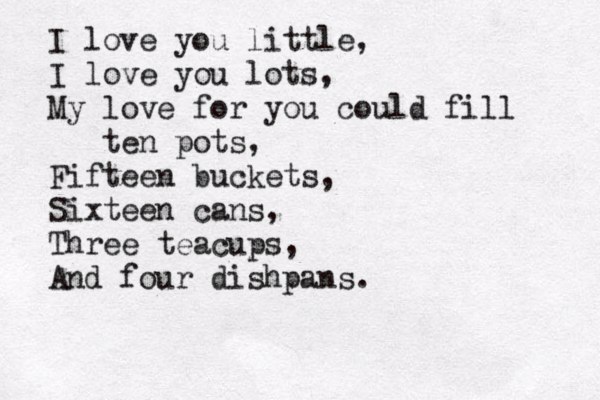 I love you little,
I love you lots,
My love for you could fill
ten pots,
Fifteen buckets,
Sixteen cans,
Three teacups,
And four dishpans.